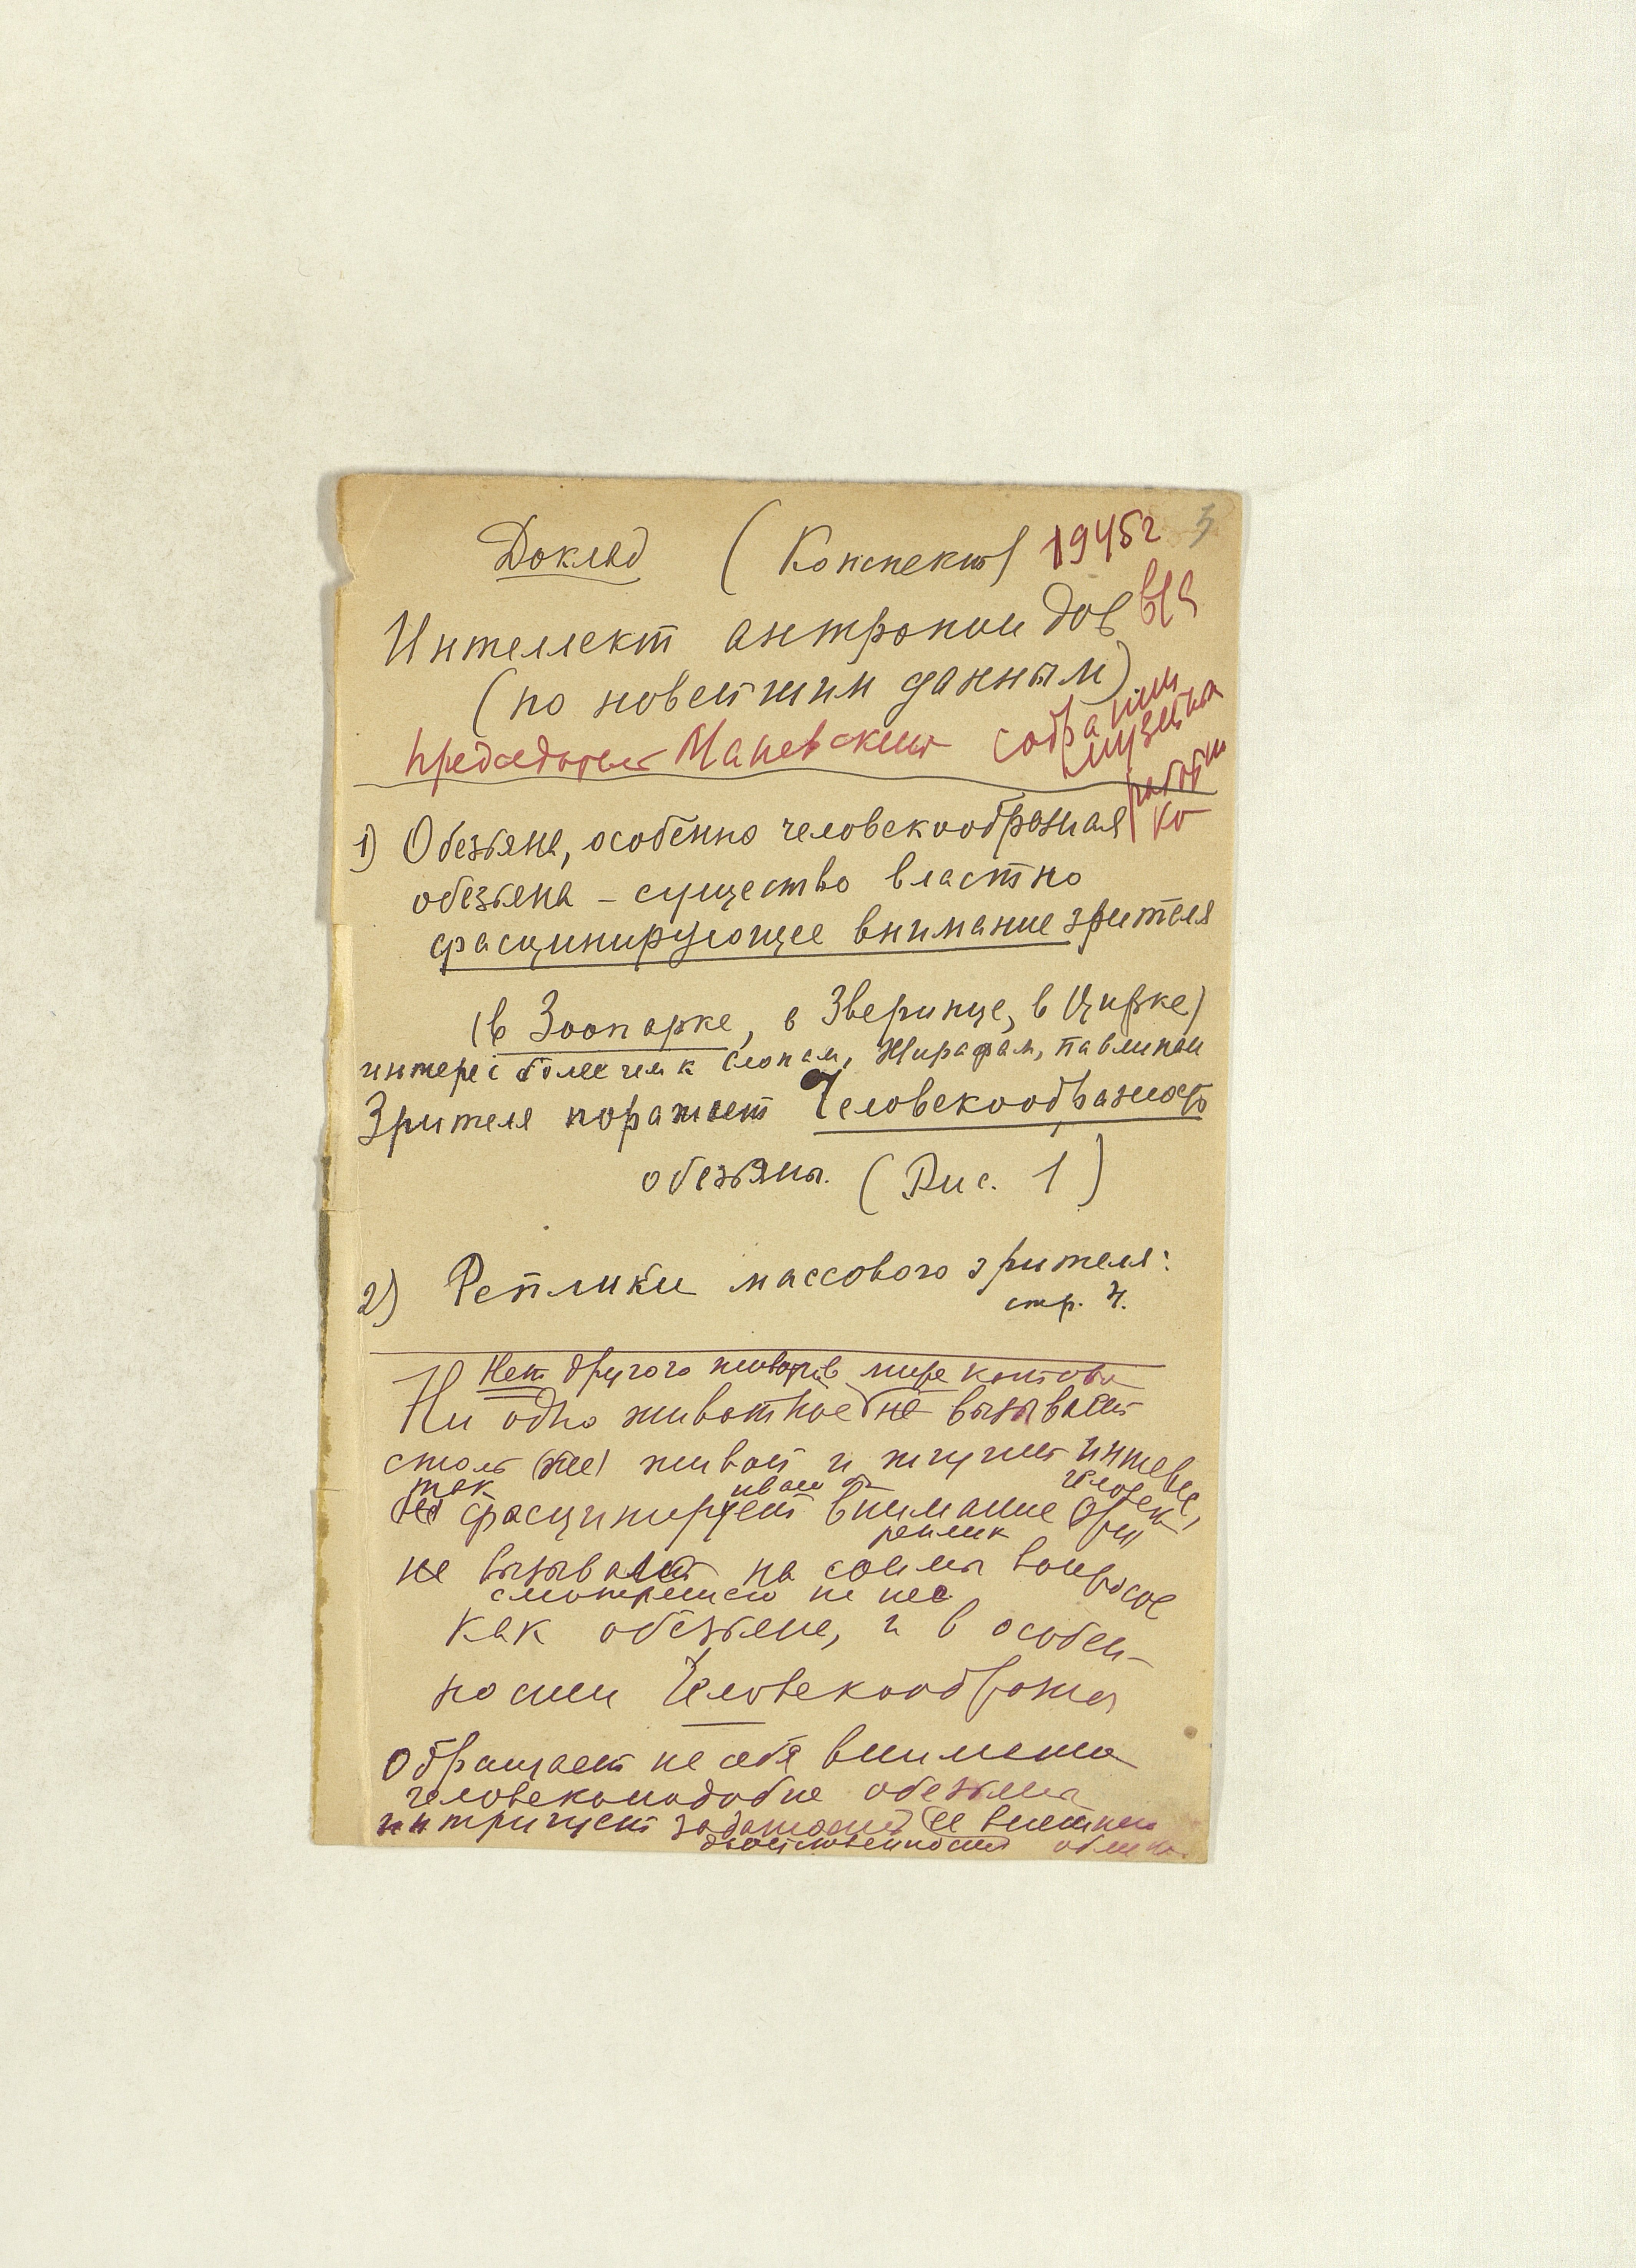 Доклад (Конспект) 1945г
Интеллект антропоидов
(по новейшим данным)
председатель Маневский собрании
1) Обезьяна, особенно человекообразная
обезьяна – существо властно
фасцинирующее внимание зрителя
(в Зоопарке, в Зверинце, в Цирке)
интерес более чем к слонам, жирафам, павлинам
Зрителя поражает Человекообразность
обезьяны. (Рис. 1)
2) Реплики массового зрителя:
стр. 4.
Нет другого в мире
Ни одно животное не вызывает
столь (же) живой и жгучий интерес,
так
фасцинирует внимание
реплик
не вызывает на вопросов
смотрящего на нее
как обезьяна, и в особен-
ности Человекообразная
Обращает на себя внимание
человекоподобие обезьяны
интригует ее внешнего
двойственности облика.